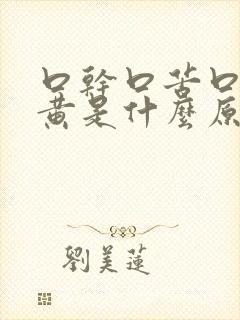 口幹口苦口
黃是什麼原
劉美蓮